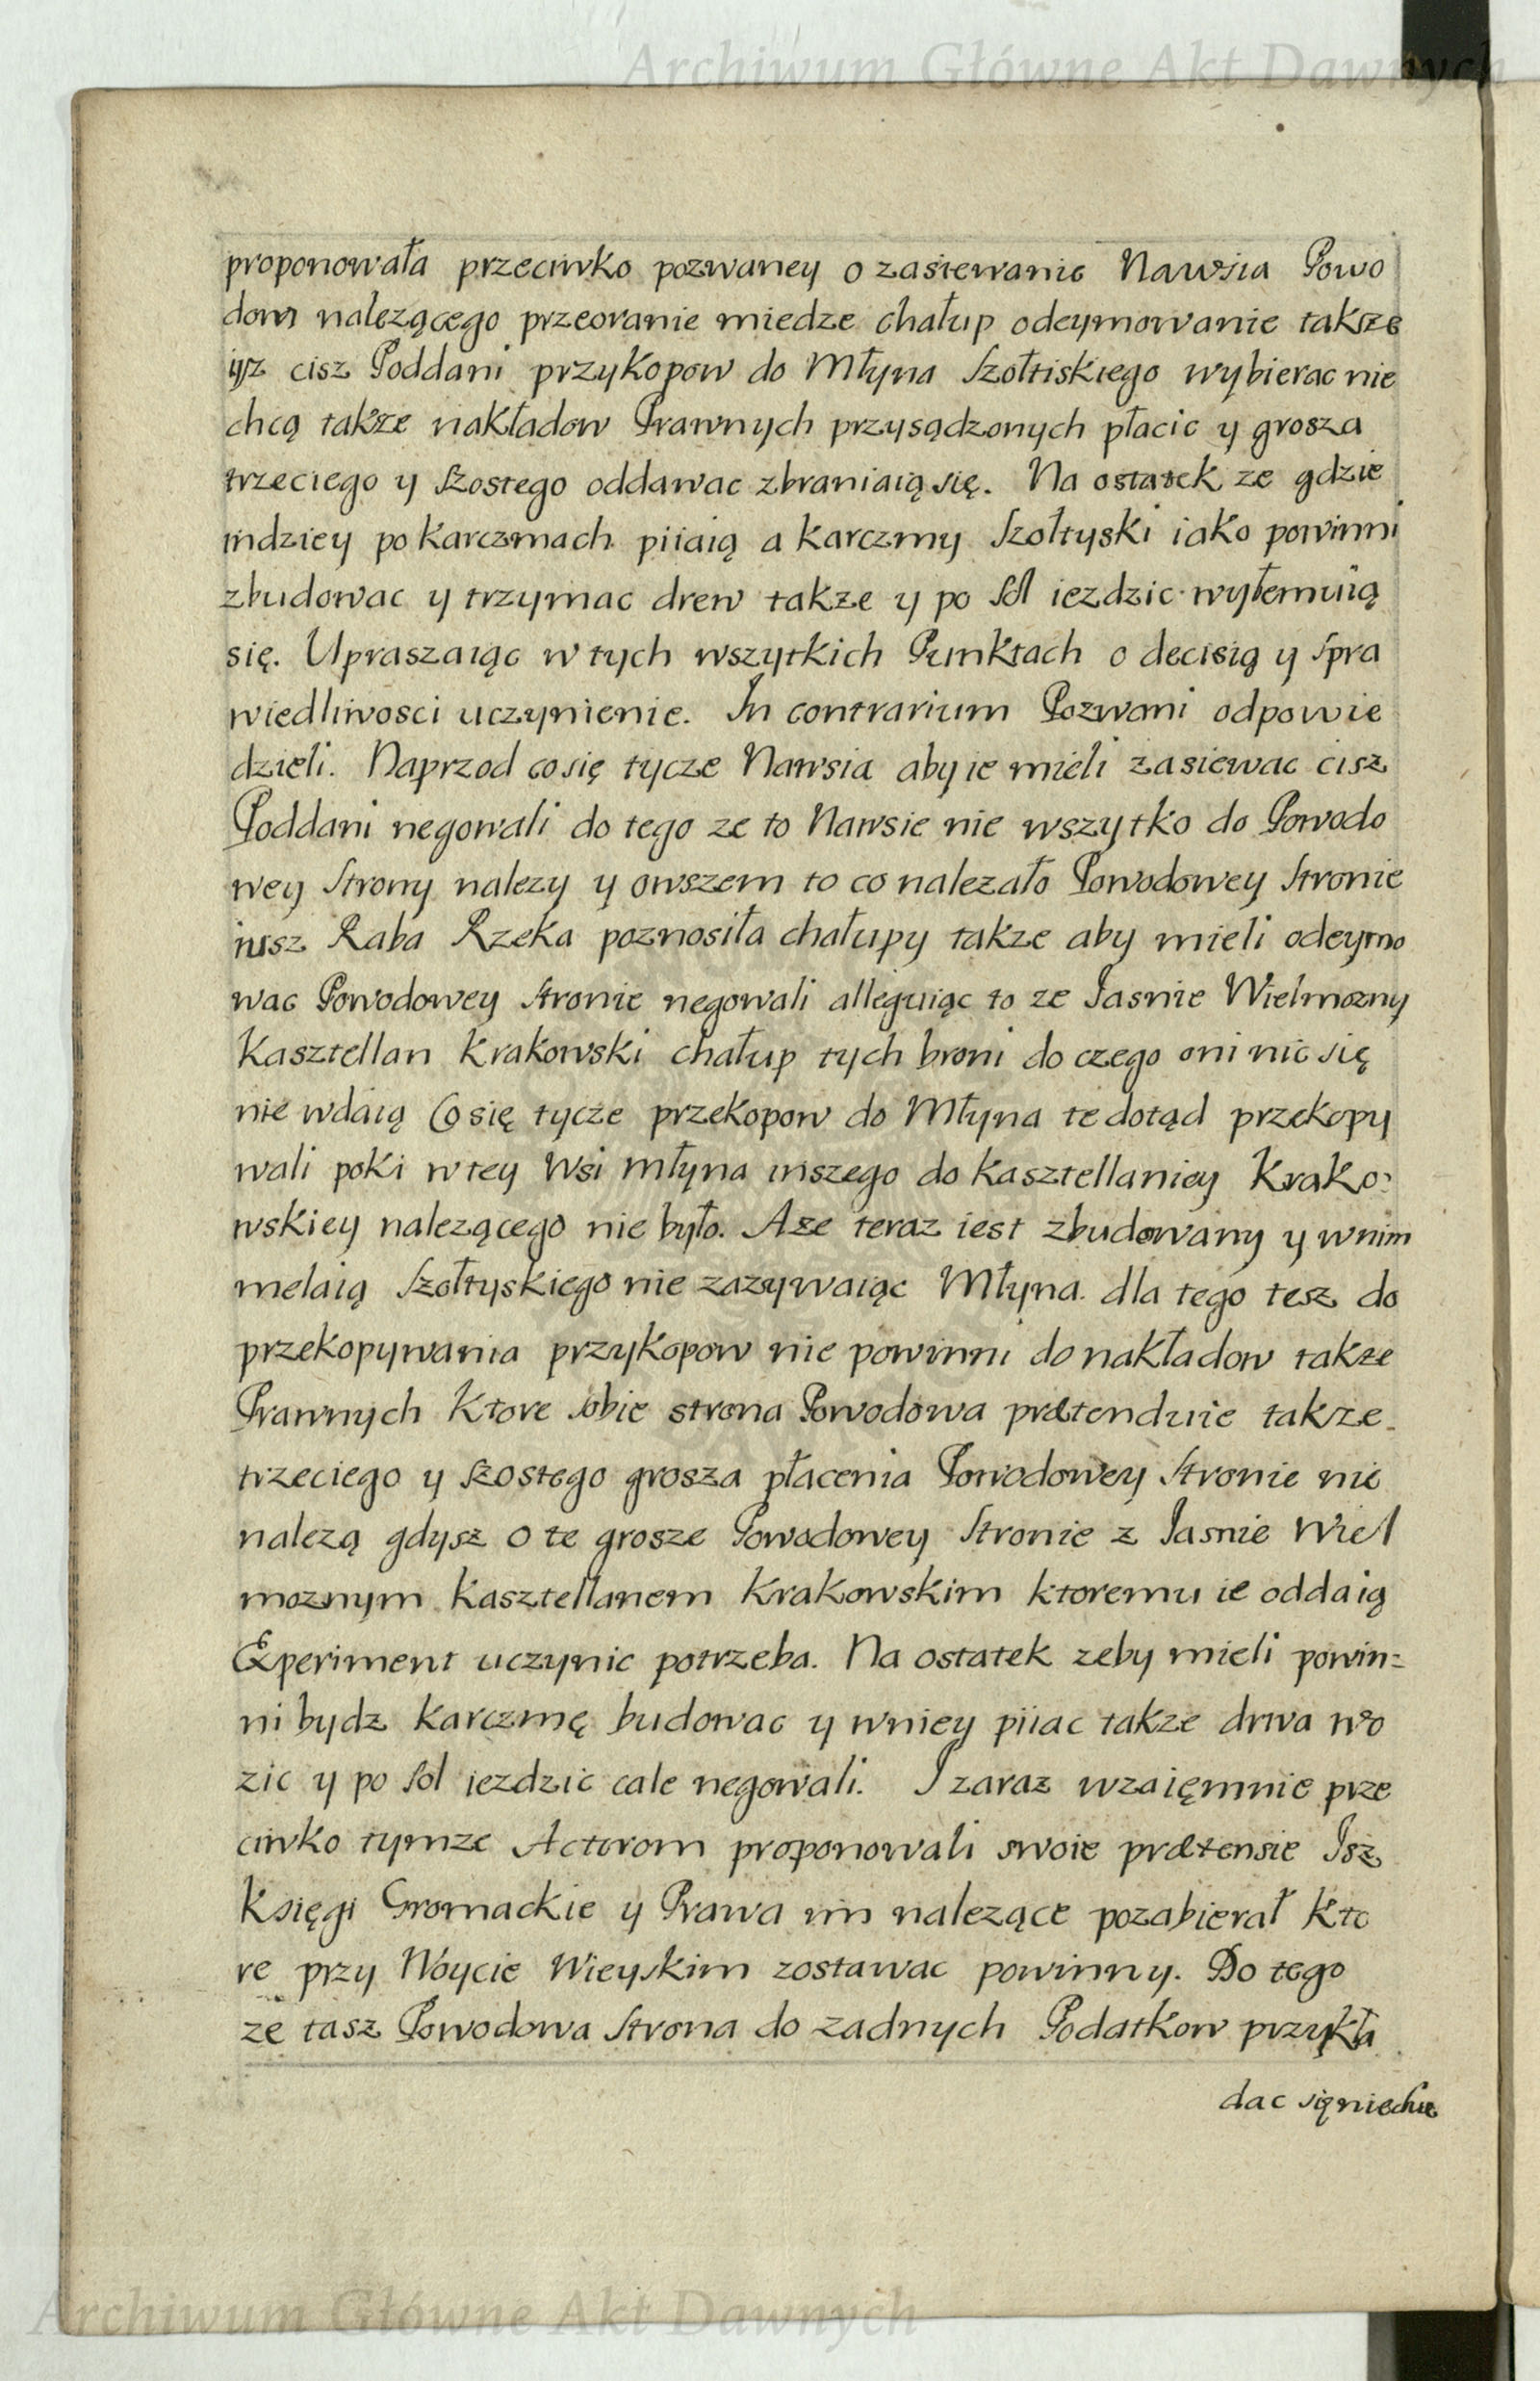 Archiwum Główne Akt Dawnych
proponowała przeciwko pozwaney o zasiewanie Nawsia Powo
dom nalezącego przeoranie miedze chałup odeymowanie taksze
ijsz cisz Poddani przykopow do Młyna Szołtiskiego wybierac nie
chcą takze nakładow Prawnych przysądzonych płacic y grosza
trzeciego y szostego oddawac zbraniaią się. Na ostatek ze gdzie
indziey po karczmach piiaią a karczmy Szołtyski iako powinni
zbudowac y trzymac drew takze y po sol iezdzic wyłemuią
się. Upraszaiąc w tych wszytkich Punktach o decisią y spra
wiedliwosci uczynienie. In contrarium Pozwani odpowie
dzieli. Naprzod co się tycze Nawsia aby ie mieli zasiewac cisz
Poddani negowali do tego ze to Nawsie nie wszytko do Powodo
wey Strony nalezy y owszem to co nalezało Powodowey Stronie
iusz Raba Rzeka poznosiła chałupy takze aby mieli odeymo
wac Powodowey Stronie negowali alleguiąc to ze Iasnie Wielmozny
Kasztellan Krakowski chałup tych broni do czego oni nic się
nie wdaią Co się tycze przekopow do Młyna te dotąd przekopy
wali poki w tey Wsi młyna inszego do kasztellaniey Krako:
wskiey nalezącego nie było. Aze teraz iest zbudowany y w nim
melaią Szołtyskiego nie zazywaiąc Młyna. dla tego tesz do
przekopywania przykopow nie powinni do nakładow takze
Prawnych Ktore sobie strona Powodowa prætenduie takze
trzeciego y szostego grosza płacenia Powodowey Stronie nie
nalezą gdysz o te grosze Powodowey Stronie z Iasnie Wiel
moznym Kasztellanem Krakowskim ktoremu ie oddaią
Experiment uczynic potrzeba. Na ostatek zeby mieli powin=
ni bydz karczmę budowac y w niey piiac takze drwa wo
zic y po sol iezdzic cale negowali. I zaraz wzaięmnie prze
ciwko tymze Actorom proponowali swoie prætensie Isz
Księgi Gromackie y Prawa im nalezące pozabierał Kto
re przy Woycie Wieyskim zostawac powinny. Do tego
ze tasz Powodowa Strona do zadnych Podatkow przykła
dac się niechce
Archiwum Główne Akt Dawnych